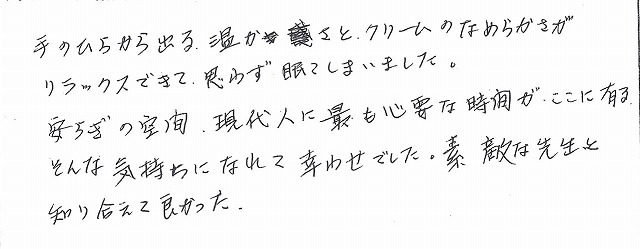 手のひらから出る、温かさと、クリームのなめらかさが
リラックスできて、思わず眠てしまいました。
安らぎの空間、現代人に最も心要な時間が、ここに有る。
そんな気持ちになれて幸わせでした。素敵な先生と
知り合えて良かった.